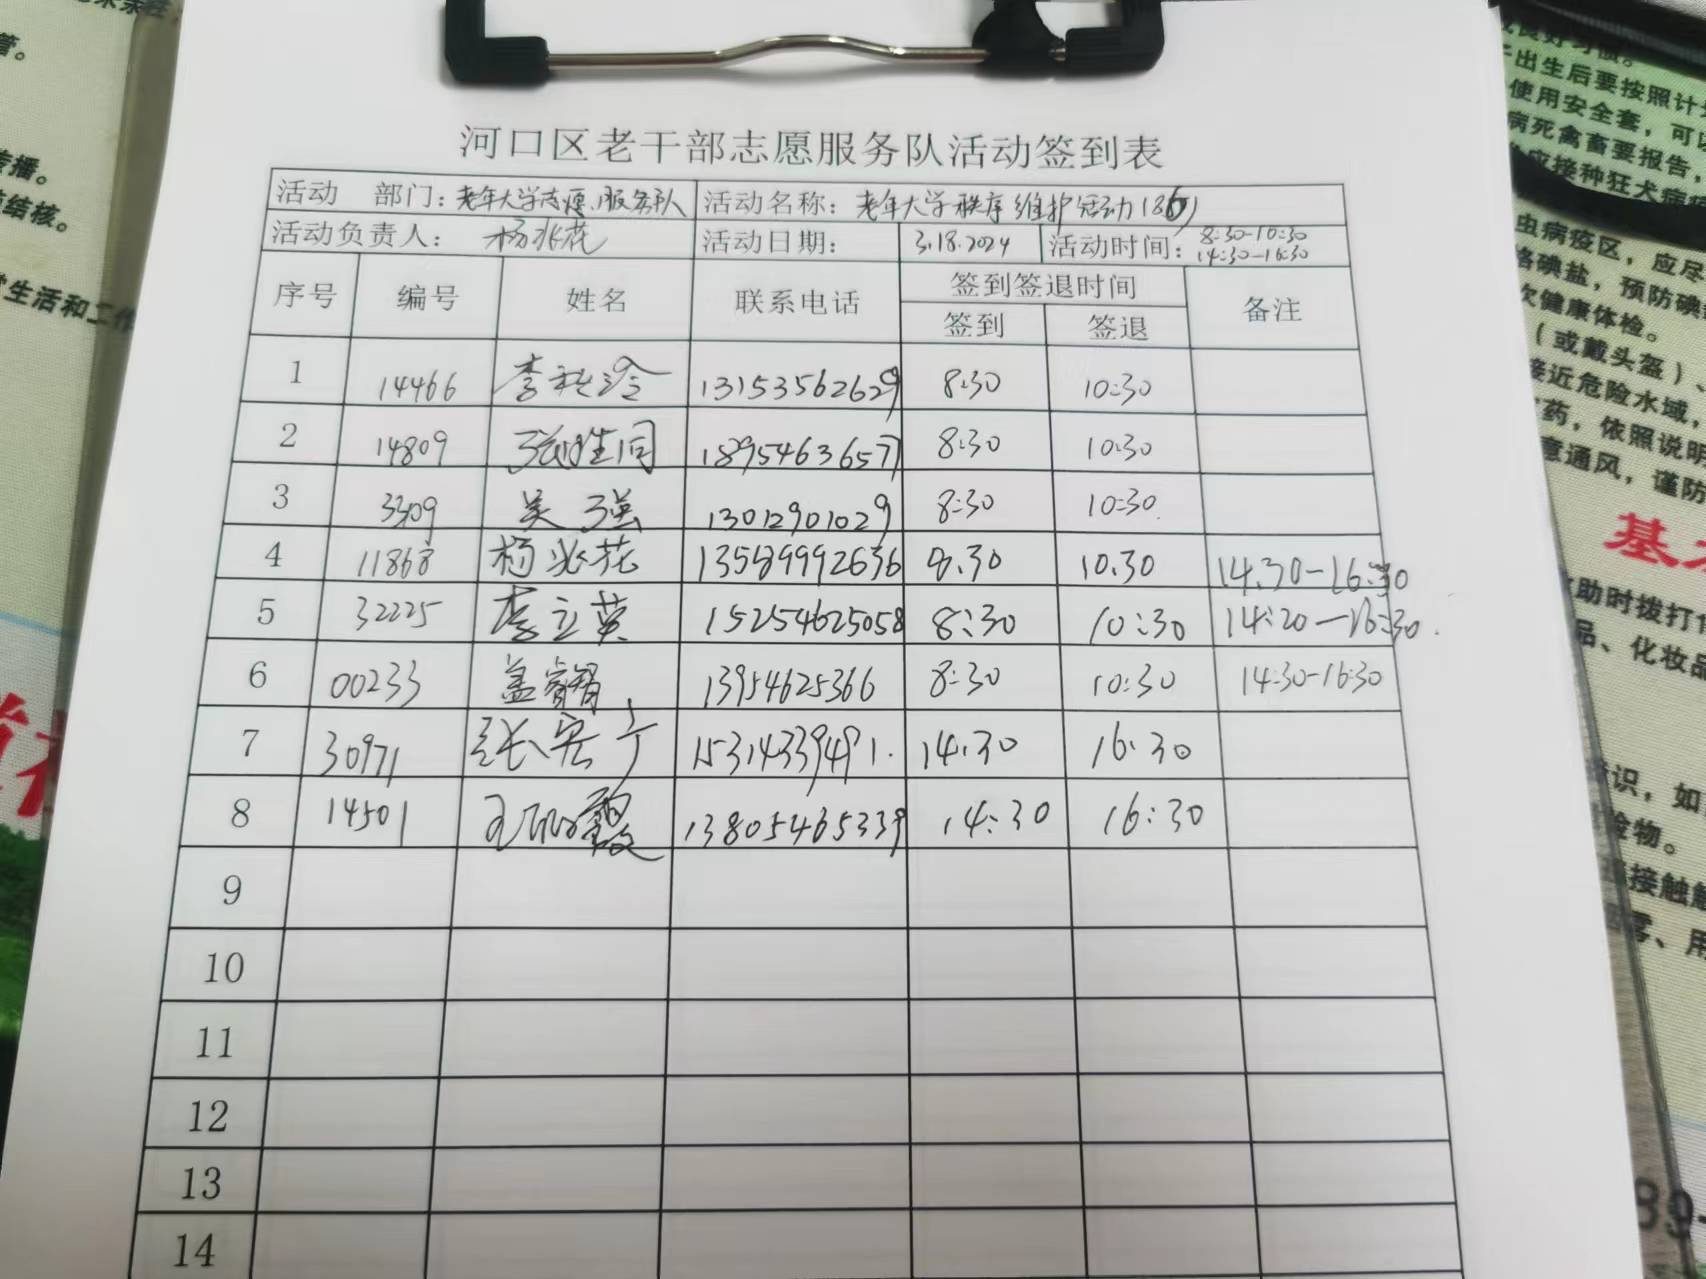 河口区老干部志愿服务队活动签到表
活动 部门: 老年大学志愿服务队 活动名称: 老年大学秩序维护活动(86)
活动负责人: 杨兆花 活动日期: 3.18.2024 活动时间: 8:30-10:30 14:30-16:30
序号 编号 姓名 联系电话 签到签退时间 备注
签到 签退
1 14466 李 13153562629 8:30 10:30
2 14809 张胜同 18954636577 8:30 10:30
3 3309 吴强 13012901029 8:30 10:30
4 11868 杨兆花 13589992636 8.30 10.30 14.30-16:30
5 32225 李立英 15254625058 8:30 10:30 14:20-16:30
6 00233 盖 13954625366 8:30 10:30 14:30-16:30
7 30971 张 15314339491. 14.30 16.30
8 14501 王 13805465339 14:30 16:30
9
10
11
12
13
14
管。
传播。
结核。
生活和工作
出生后要按照计
使用安全套，可
病死禽畜要报告，
应接种狂犬病
虫病疫区，应尽
碘盐，预防碘
次健康体检。
（或戴头盔）、
接近危险水域，
药，依照说明
意通风，谨防
基
助时拨打
品、化妆品
识，如
险物。
接触
雾、用
89-